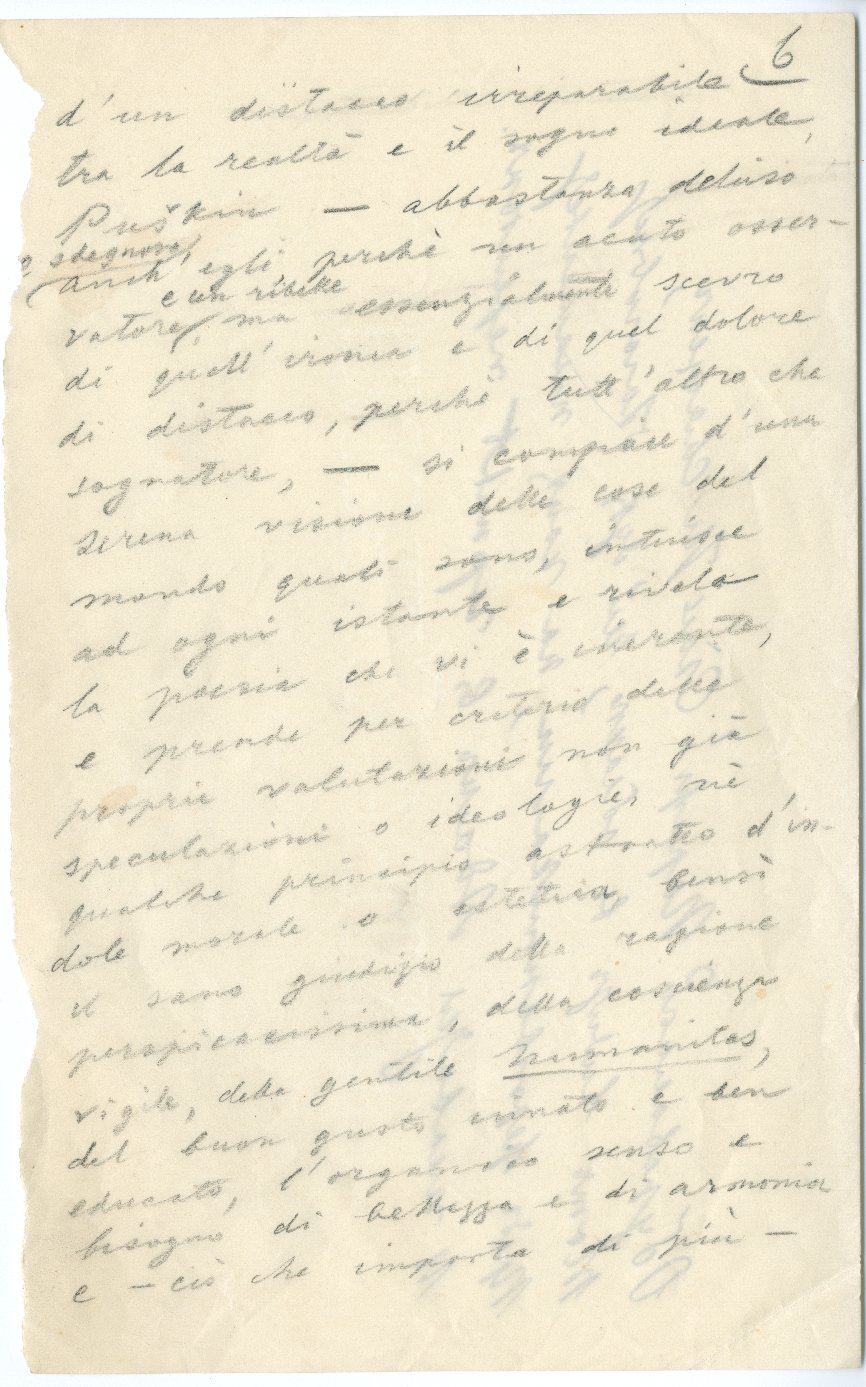 6
d'un distacco irreparabile
tra la realtà e il sogno ideale,
Puškin — abbastanza deluso
e sdegnoso,
anch'egli perchè un acuto osser-
e un ribelle
vatore, ma essenzialmente scevro
di quell'ironia e di quel dolore
di distacco, perchè tutt'altro che
sognatore, — si compiace d'una
serena visione delle cose del
mondo quali sono, intuisce
ad ogni istante e rivela
la poesia che vi è inerente,
e prende per criterio delle
proprie valutazioni non già
speculazioni o ideologie, nè
qualche principio astratto d'in-
dole morale o estetica bensì
il sano giudizio della ragione
perspicacissima, della coscienza
vigile, della gentile humanitas,
del buon gusto innato e ben
educato, l'organico senso e
bisogno di bellezza e di armonia
e — ciò che importa di più —